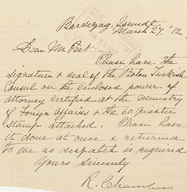 Bardezag, Ismidt
March 27, '12
Dear Mr. Peet
Please have the
signature & seal of the Turkish
Consul on the enclosed power of
attorney certified at the Ministry
of Foreign Affairs & the 60 para
stamp attached. Please have
it done at once & returned
to me as despatch is required
Yours Sincerely
R. Chambers